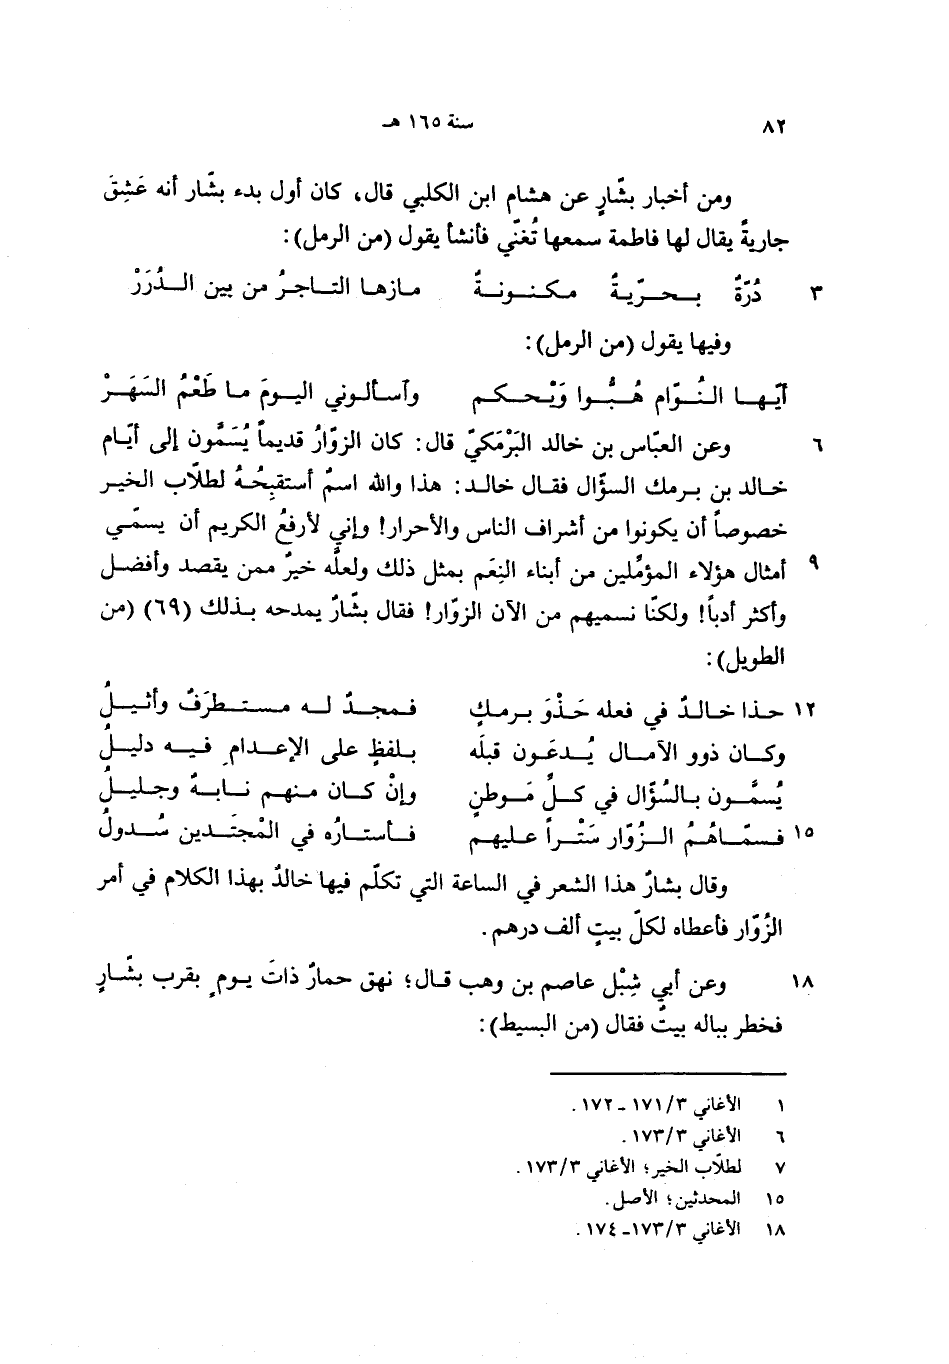 ٨٢ سنة ١٦٥ هـ
ومن أخبار بشّارٍ عن هشام ابن الكلبي قال، كان أول بدء بشّار أنه عَشِقَ
جاريةً يقال لها فاطمة سمعها تُغنّي فأنشأ يقول (من الرمل):
٣ دُرّةٌ بـحـرّيـةٌ مكـنـونـةٌ مـازهـا التـاجـرُ من بين الـدُرَرْ
وفيها يقول (من الرمل):
أيّهـا النُـوّام هُـبُّـوا وَيْـحـكـم وآسـألـوني اليـومَ مـا طَعْمُ السَهَـرْ
٦ وعن العبّاس بن خالد البَرْمَكيّ قال: كان الزوّارُ قديماً يُسَمَّون إلى أيّام
خالد بن برمك السؤّال فقال خالد: هذا والله اسمٌ أستقبِحُهُ لطلّاب الخير
خصوصاً أن يكونوا من أشراف الناس والأحرار! وإني لأرفعُ الكريم أن يسمّي
٩ أمثال هؤلاء المؤمّلين من أبناء النِعَم بمثل ذلك ولعلّه خيرٌ ممن يقصد وأفضل
وأكثر أدباً! ولكنّا نسميهم من الآن الزوّار! فقال بشّارٌ يمدحه بذلك (٦٩) (من
الطويل):
١٢ حـذا خـالـدٌ في فعله حَذْوَ بـرمـكٍ فـمجـدٌ لـه مـسـتـطـرَفٌ وأثـيـلُ
وكـان ذوو الآمـال يُـدعَـون قبلَه بـلفظٍ على الإعـدامِ فـيـه دليـلُ
يُسمَّـون بـالسُؤّال في كـلّ مَـوطنٍ وإنْ كـان مـنهـم نـابـهٌ وجـليـلُ
١٥ فـسمّـاهُـمُ الـزُوّار سَتْـراً عـليهـم فـأستـارُه في المُجتَـدين سُـدولُ
وقال بشارٌ هذا الشعر في الساعة التي تكلّم فيها خالدٌ بهذا الكلام في أمر
الزُوّار فأعطاه لكلّ بيتٍ ألف درهم.
١٨ وعن أبي شِبْل عاصم بن وهب قـال؛ نهق حمارٌ ذاتَ يـومٍ بقرب بشّـارٍ
فخطر بباله بيتٌ فقال (من البسيط):
١ الأغاني ٣/١٧١ـ١٧٢.
٦ الأغاني ٣/١٧٣.
٧ لطلّاب الخير؛ الأغاني ٣/١٧٣.
١٥ المحدثين؛ الأصل.
١٨ الأغاني ٣/١٧٣ـ١٧٤.